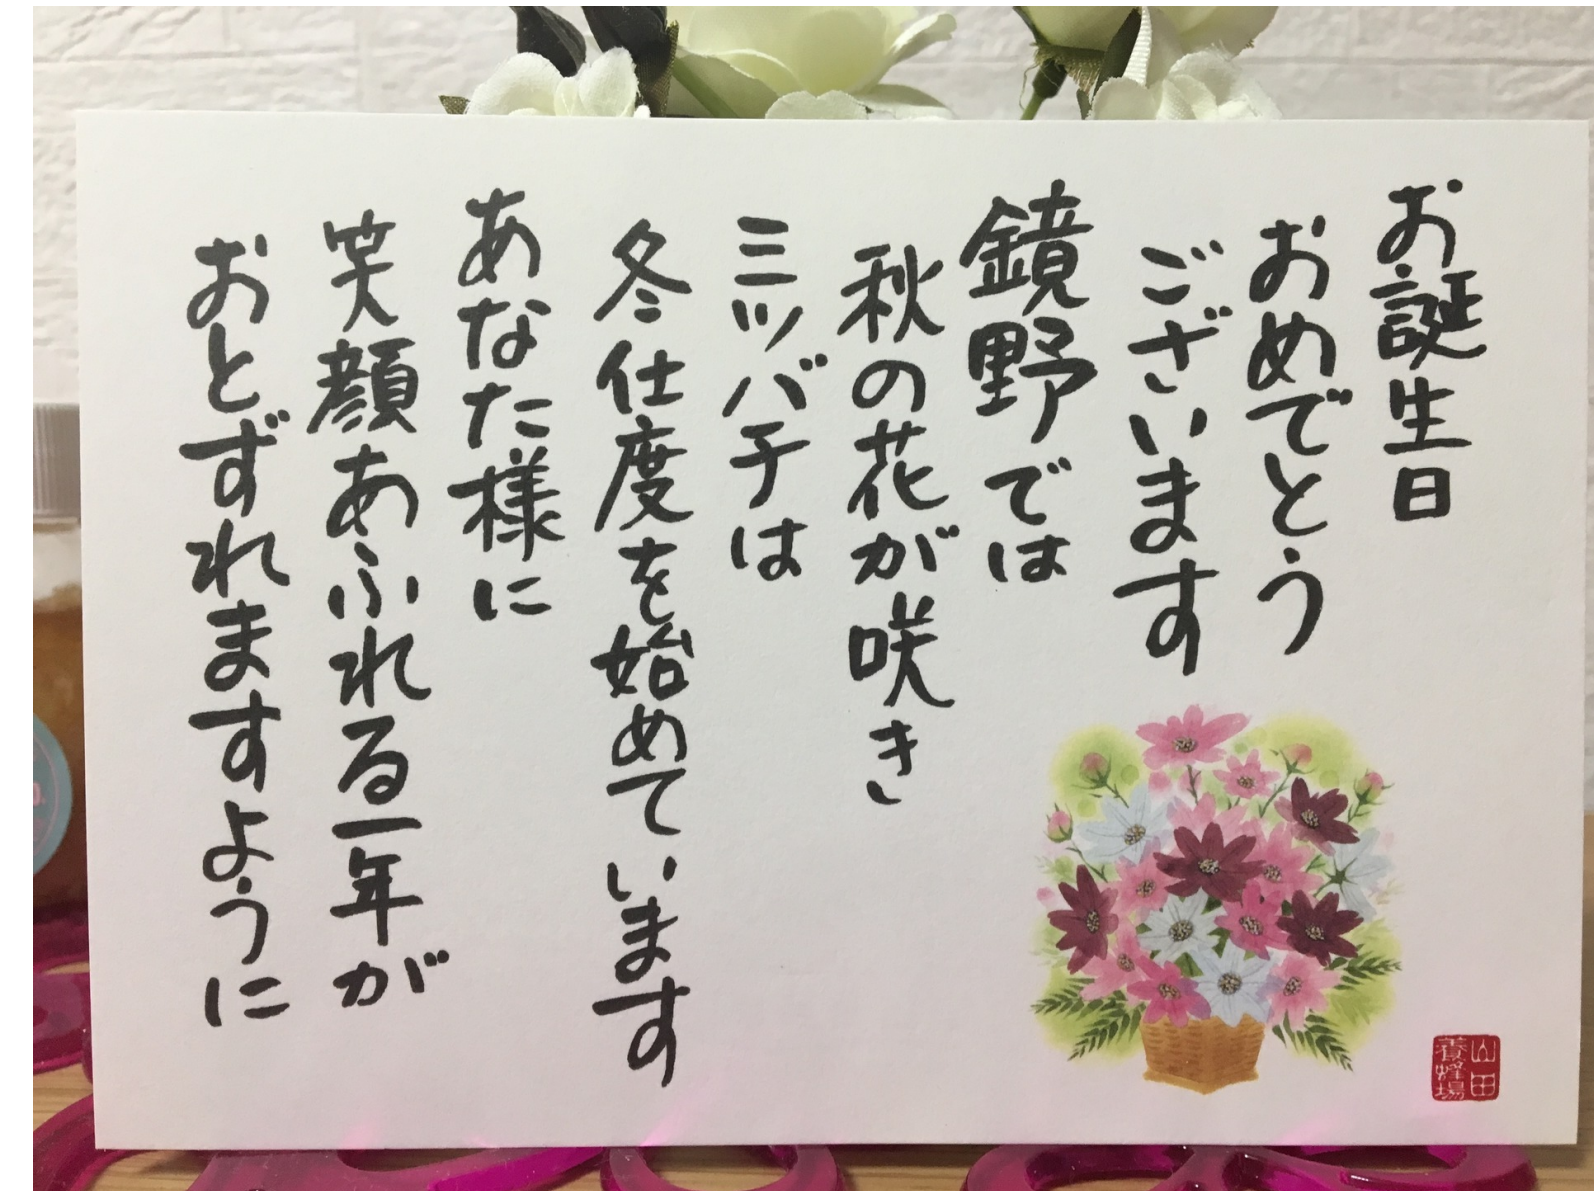 お誕生日
おめでとう
ございます
鏡野では
秋の花が咲き
ミツバチは
冬仕度を始めています
あなた様に
笑顔あふれる一年が
おとずれますように
山田
養蜂場